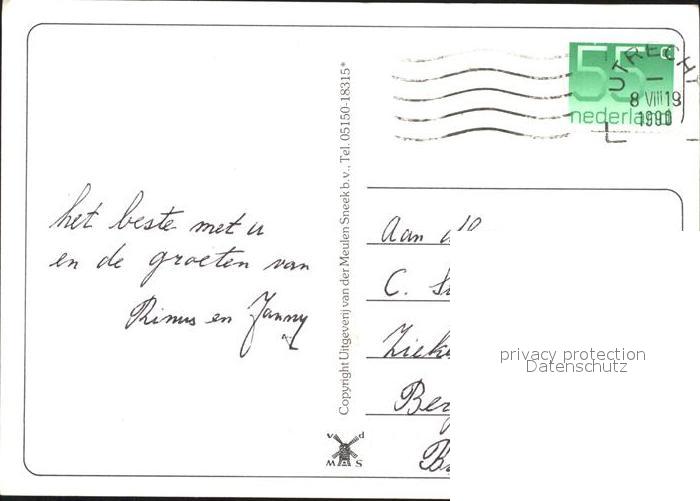 het beste met u
en de groeten van
Rinus en Janny
Copyright Uitgeverij van der Meulen Sneek b.v., Tel. 05150-18315*
v d
M S
55c
nederland
UTRECHT
8 VIII 19
1990
Aan
C.
privacy protection
Datenschutz